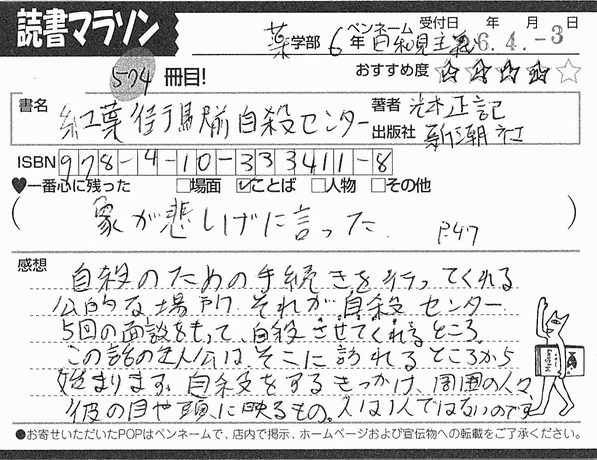 読書マラソン
薬学部 6年 ペンネーム 自和見主義 受付日 年 月 日
6.4.-3
574冊目!
おすすめ度 ☆☆☆☆☆
書名 紅葉街駅前自殺センター
著者 光本正記
出版社 新潮社
ISBN 978-4-10-333411-8
♥一番心に残った □場面 ☑ことば □人物 □その他
(象が悲しげに言った P47)
感想
自殺のための手続きを行ってくれる
公的な場所 それが自殺センター
5回の面談をもって、自殺させてくれるところ。
この話の主人公は、そこに訪れるところから
始まります。自殺をするきっかけ、周囲の人々、
彼の目や頭に映るもの。人は1人ではないのです
●お寄せいただいたPOPはペンネームで、店内で掲示、ホームページおよび宣伝物への転載をご了承ください。